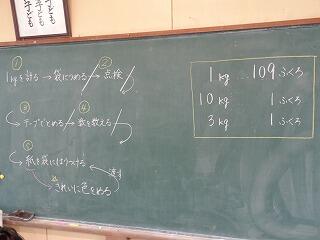 ① ②
1kgを計る → 袋につめる 点検
③ ④
テープでとめる 数を数える
⑤
紙を袋にはりつける 渡す
きれいに色をぬる
1kg … 109ふくろ
10kg 1ふくろ
3kg 1ふくろ